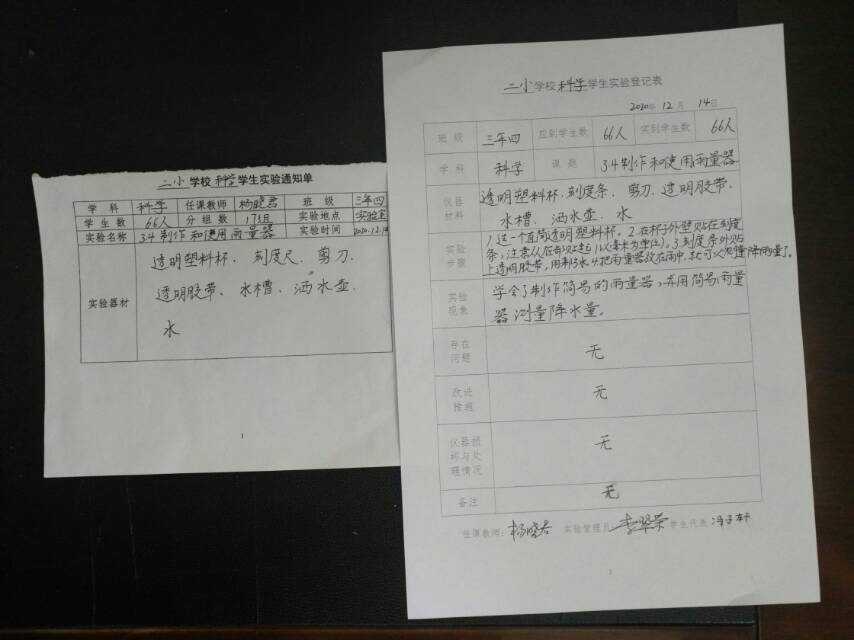 二小学校科学学生实验通知单
学 科 科学 任课教师 杨晓君 班 级 三年四
学 生 数 66人 分 组 数 17组 实验地点 实验室
实验名称 3.4制作和使用雨量器 实验时间 2020.12.14
实验器材 透明塑料杯、刻度尺、剪刀、
透明胶带、水槽、洒水壶、
水
1
二小学校科学学生实验登记表
2020年 12 月 14日
班 级 三年四 应到学生数 66人 实到学生数 66人
学 科 科学 课 题 3.4制作和使用雨量器
仪器 透明塑料杯、刻度条、剪刀、透明胶带、
材料 水槽、洒水壶、水
实验 1.选一个直筒透明塑料杯。2.在杯子外壁贴在刻度
步骤 条,注意从 (以毫米为单位)。3.刻度条外贴
上透明胶带,用来防水.4.把雨量器放在雨中,就可以测量降雨量了。
实验 学会了制作简易的雨量器,并用简易雨量
现象 器测量降水量。
存在
问题 无
改进
措施 无
仪器损
坏与处 无
理情况
备注 无
任课教师: 杨晓君 实验管理员: 李翠荣 学生代表 冯子轩